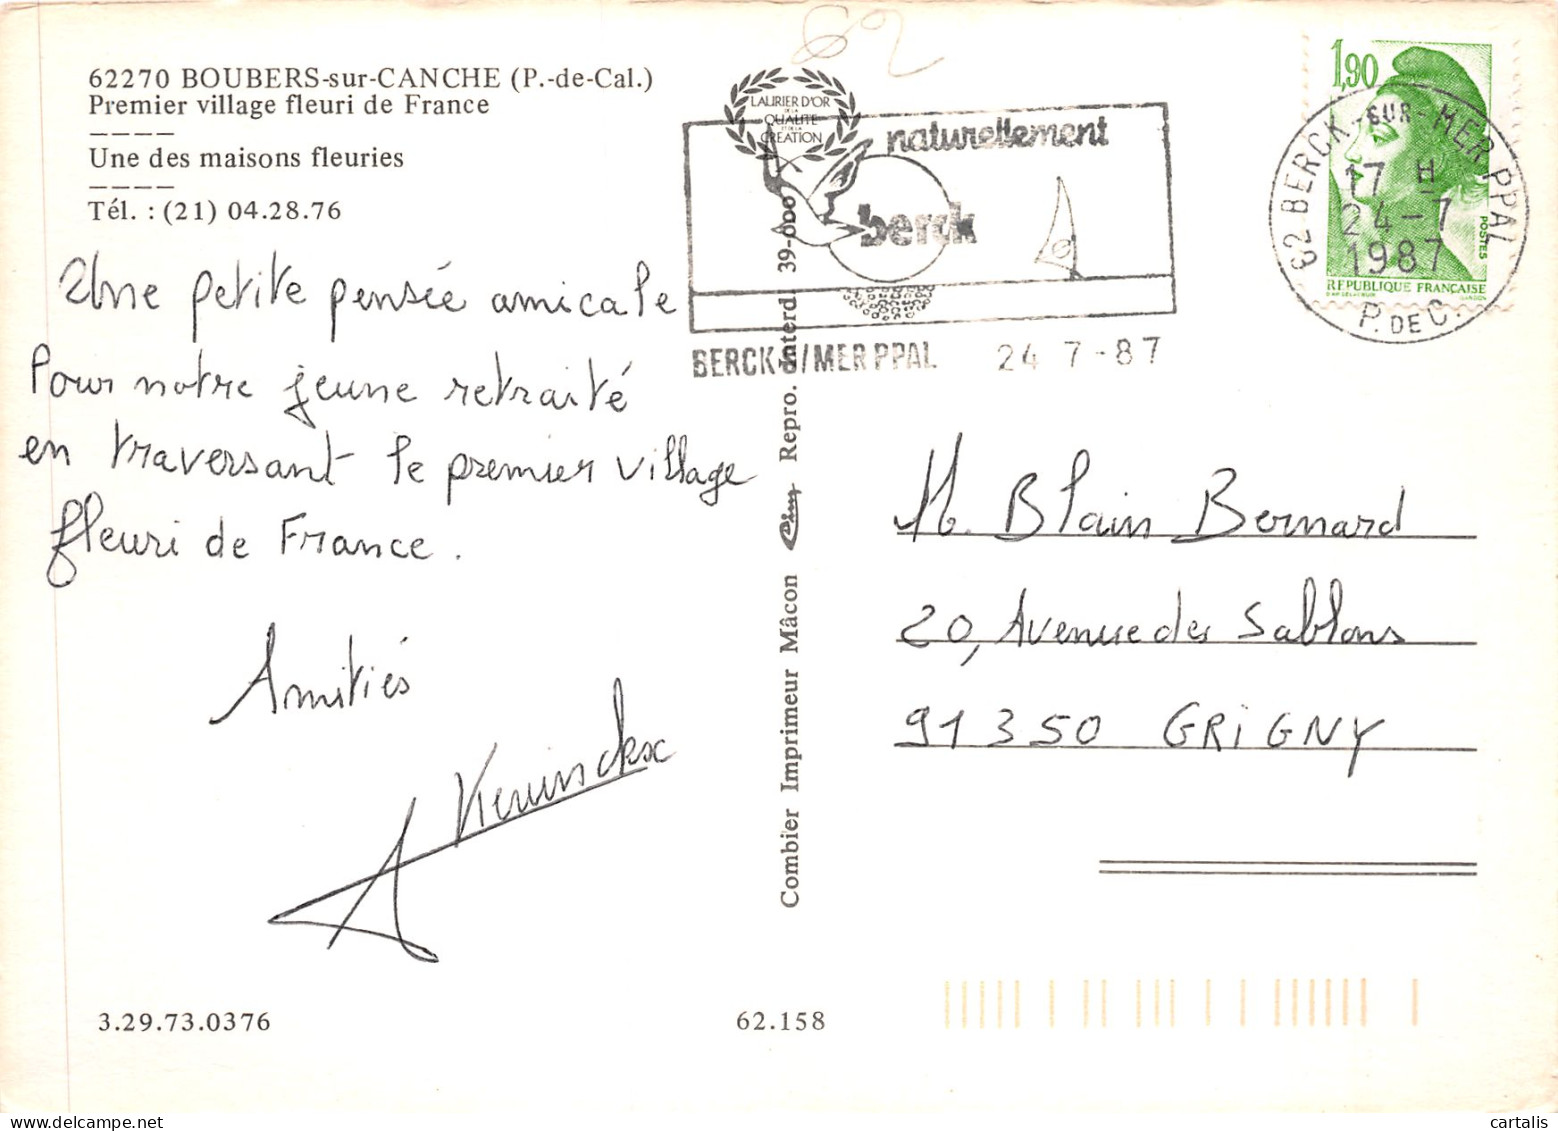 62
62270 BOUBERS-sur-CANCHE (P.-de-Cal.)
Premier village fleuri de France
Une des maisons fleuries
Tél. : (21) 04.28.76
Une petite pensée amicale
Pour notre jeune retraité
en traversant le premier village
fleuri de France.
Amitiés
3.29.73.0376
62.158
LAURIER D'OR
DE LA
QUALITÉ
ET DE LA
CRÉATION
Combier Imprimeur Mâcon
Repro. Interd. 39-000
naturellement
berck
BERCK S/MER PPAL 24 7-87
1,90
POSTES
REPUBLIQUE FRANÇAISE
62 BERCK-SUR-MER PPAL
17 H
24-7
1987
P. DE C.
M. Blain Bernard
20, Avenue des Sablons
91350 GRIGNY
cartalis